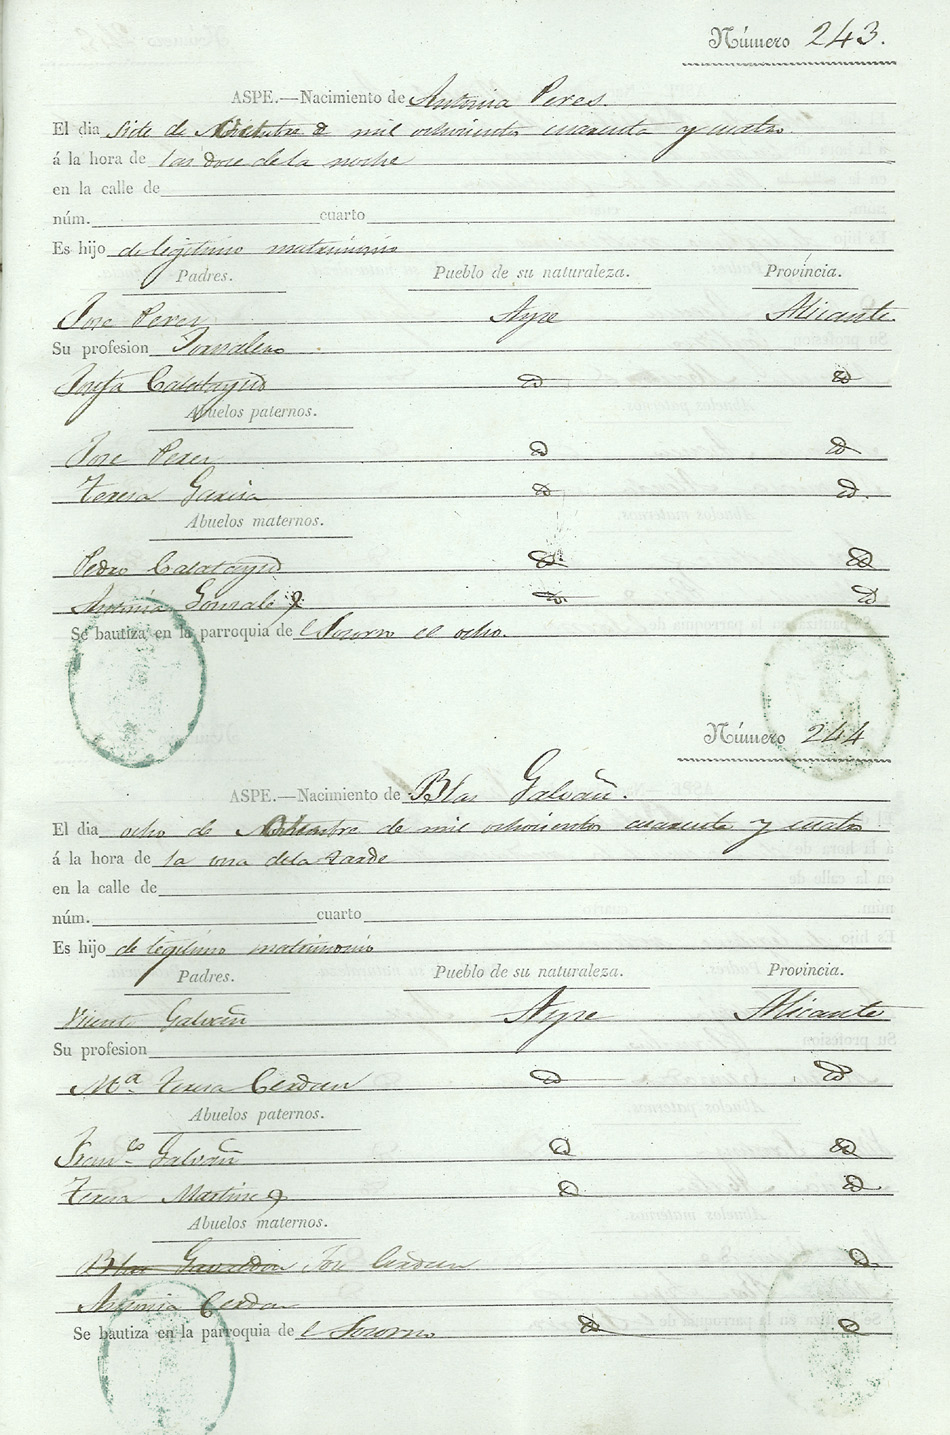 Número 243.
ASPE.—Nacimiento de Antonia Peres.
El dia siete de mil ochocientos cuarenta y cuatro
á la hora de las doce de la noche
en la calle de
núm. cuarto
Es hijo de legitimo matrimonio
Padres. Pueblo de su naturaleza. Província.
Jose Peres Aspe Alicante
Su profesion Jornalero
Josefa Calatayud id id
Abuelos paternos.
Jose Peres id id
Teresa Garcia id id.
Abuelos maternos.
Pedro Calatayud id id
Antonia Gonzalez id id
Se bautiza en la parroquia de el Socorro el ocho.
Número 244
ASPE.—Nacimiento de Blas Galvañ.
El dia ocho de de mil ochocientos cuarenta y cuatro
á la hora de la una de la tarde
en la calle de
núm. cuarto
Es hijo de legitimo matrimonio
Padres. Pueblo de su naturaleza. Provincia.
Vicente Galvañ Aspe Alicante
Su profesion
Mª Teresa Cerdan id id
Abuelos paternos.
Franco Galvañ id id
Teresa Martinez id id
Abuelos maternos.
Blas Jose Cerdan id
Antonia Cerdan
Se bautiza en la parroquia de el Socorro id id